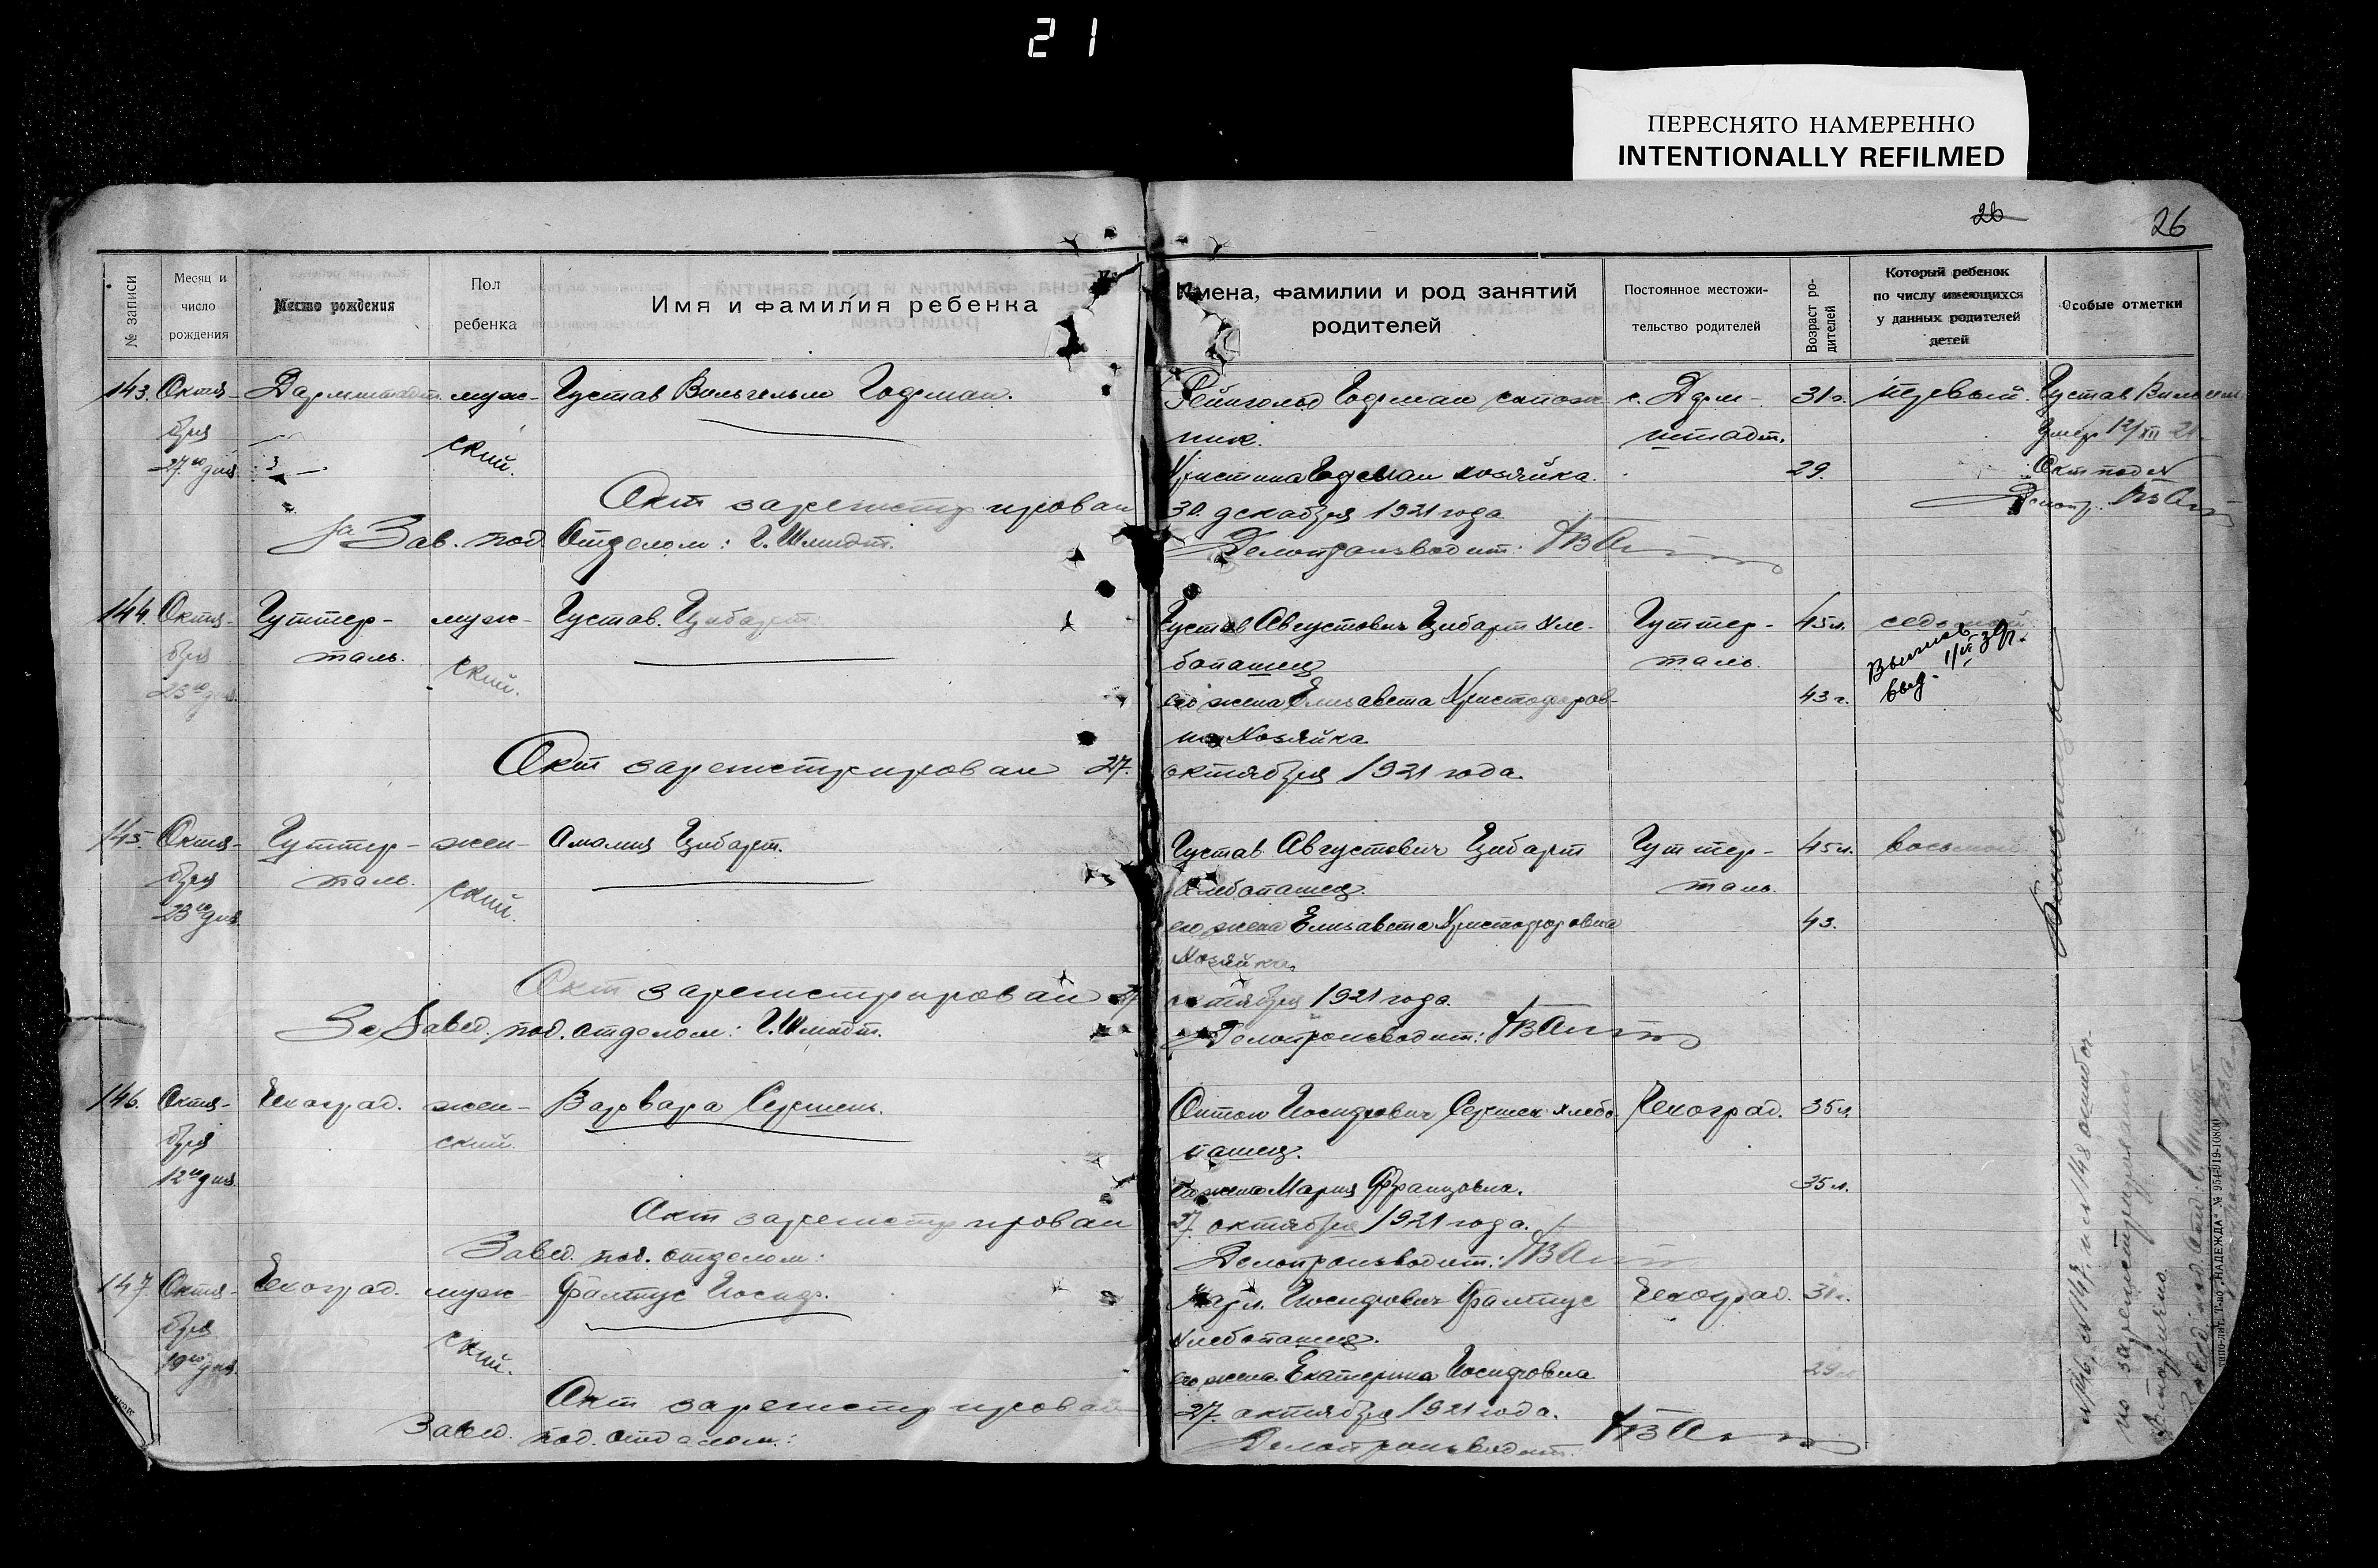 21
ПЕРЕСНЯТО НАМЕРЕННО
INTENTIONALLY REFILMED
26
26
№ записи
Месяц и
число
рождения
Место рождения
Пол
ребенка
Имя и фамилия ребенка
Имена, фамилии и род занятий
родителей
Постоянное местожи-
тельство родителей
Возраст ро-
дителей
Который ребенок
по числу имеющихся
у данных родителей
детей
Особые отметки
143. Октя-
бря
27го дня
Дармштадт.
муж-
ский.
Густав Вильгельм Годеман.
Рейнгольд Годеман сапож
ник.
с. Дарм-
штадт.
31 г.
первый.
Густав Вильгельм
умер 12/XII 21
Акт под №
Христина Годеман хозяйка.
29.
Акт зарегистрирован
30. декабря 1921 года
За Зав. под Отделом: Г. Шмидт.
Делопроизводит:
144. Октя-
бря
23го дня.
Гуттер-
таль.
муж-
ский.
Густав. Цибарт.
Густав Августович Цибарт хле-
бопашец
его жена Елизавета Христофоров-
на Хозяйка
Гуттер-
таль.
45 л.
43 г.
седьмой
Акт зарегистрирован 27.
октября 1921 года.
145. Октя-
бря
23го дня
Гуттер-
таль.
жен-
ский.
Амалия Цибарт.
Густав Августович Цибарт
хлебопашец.
его жена Елизавета Христофоровна
Хозяйка.
Гуттер-
таль.
45 л.
43.
восьмой
Акт зарегистрирован 27
октября 1921 года.
За Завед. под. отделом: Г. Шмидт.
Делопроизводит:
146. Октя-
бря
12го дня.
Чехоград.
жен-
ский.
Варвара
Антон Иосифович хлебо
пашец.
его жена Мария Францовна.
Чехоград.
35 л.
35 л.
Акт зарегистрирован
27. октября 1921 года.
Завед. под. отделом:
Делопроизводит:
147 Октя-
бря
19го дня.
Чехоград.
муж-
ский.
Фалтус Иосиф.
Карл. Иосифович Фалтус
хлебопашец.
его жена Екатерина Иосифовна
Чехоград.
29
Акт зарегистрирован
27. октября 1921 года.
Завед. под. отделом:
Делопроизводит.
№146, №147. и №148 ошибоч
но зарегистрировались
вторично.
Типо-лит. Т-во „НАДЕЖДА"